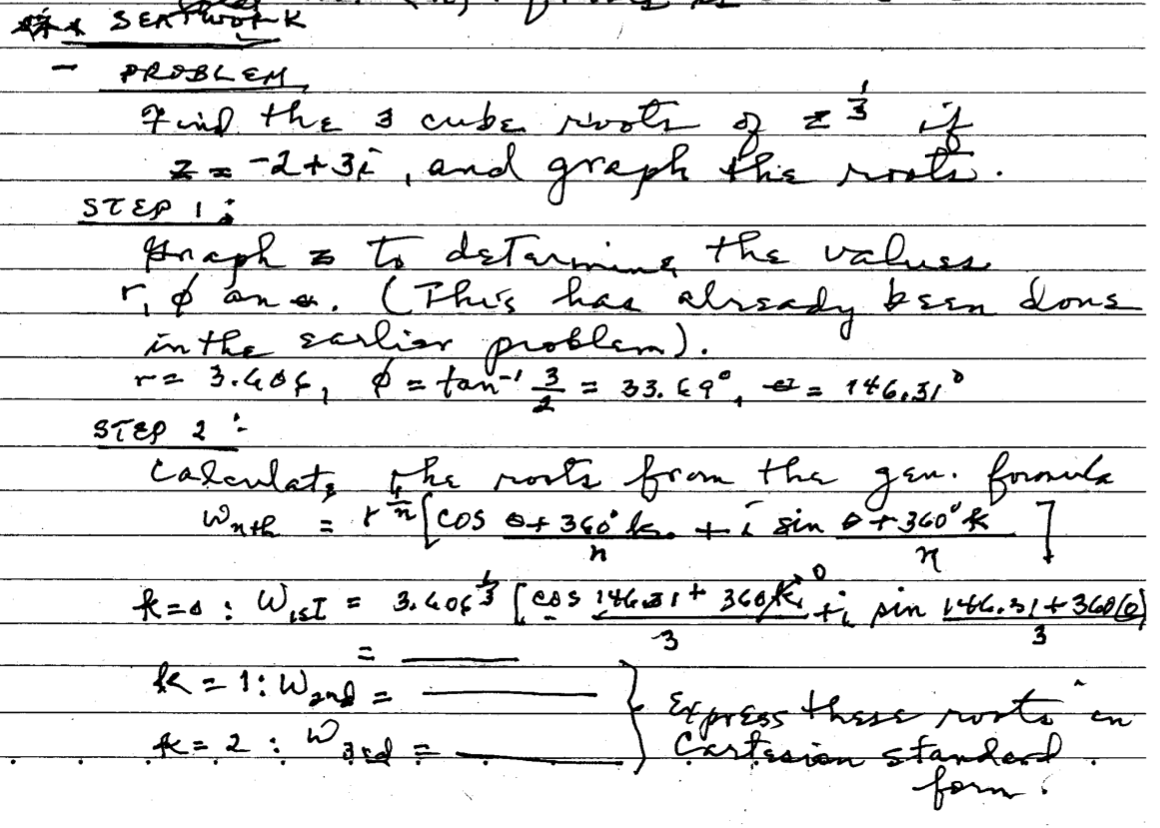 SEATWORK
- PROBLEM
Find the 3 cube roots of z^(1/3) if
z = -2+3i, and graph the roots.
STEP 1:
Graph z to determine the values
r, φ an θ. (This has already been done
in the earlier problem).
r = 3.606, φ = tan⁻¹ 3/2 = 33.69°, θ = 146.31°
STEP 2:
Calculate the roots from the gen. formula
W_nth = r^(1/n) [cos (θ+360°k)/n + i sin (θ+360°k)/n]
k=0 : W_1st = 3.606^(1/3) [cos (146.31+360k⁰)/3 + i sin (146.31+360(0))/3
= ____
k=1: W_2nd = ____
k=2 : W_3rd = ____
Express these roots in
Cartesian standard
form.